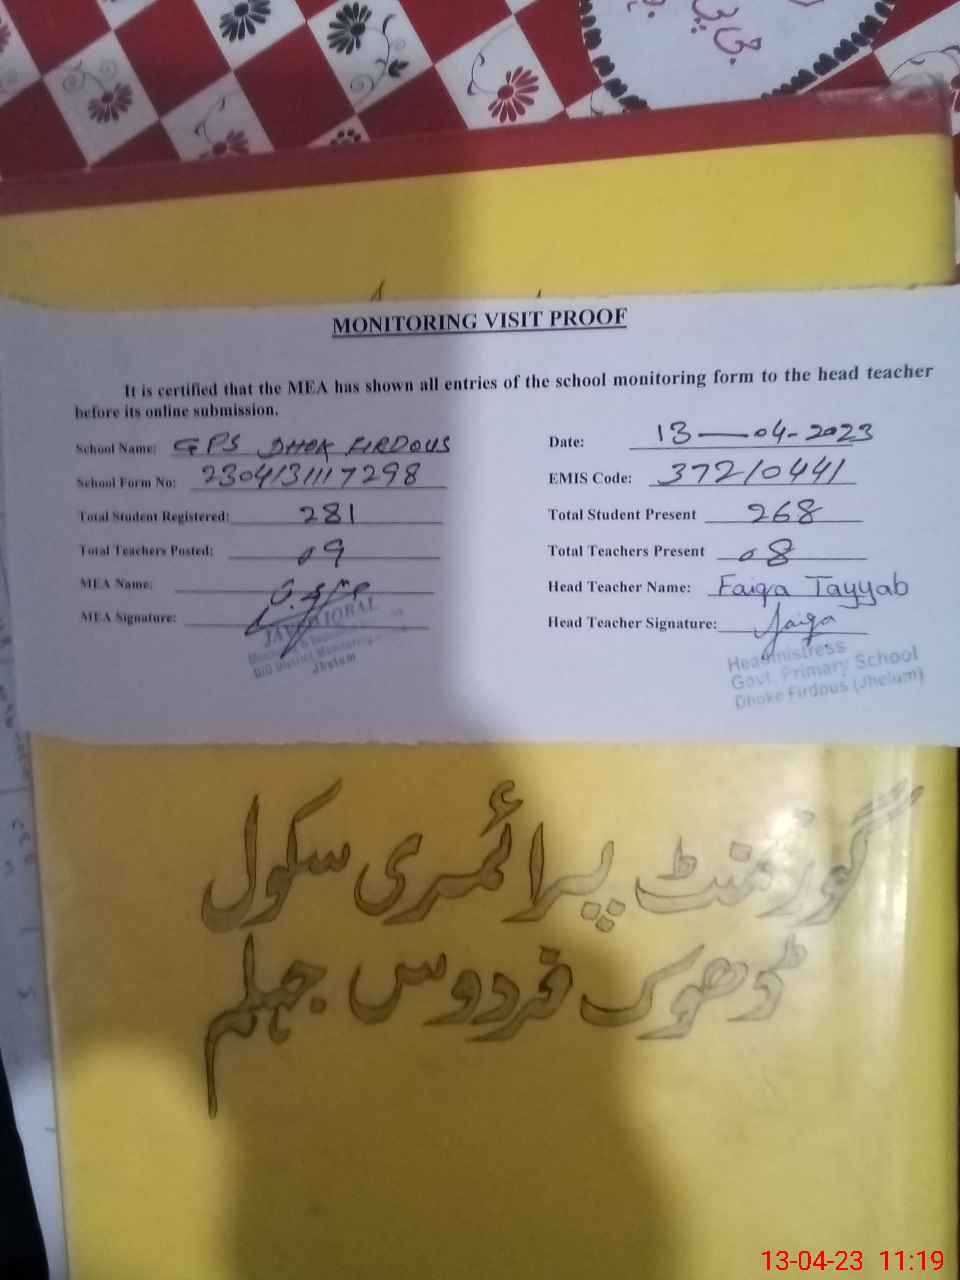 MONITORING VISIT PROOF
It is certified that the MEA has shown all entries of the school monitoring form to the head teacher
before its online submission.
School Name: GPS DHOK FIRDOUS
Date: 13-04-2023
School Form No: 2304131117298
EMIS Code: 37210441
Total Student Registered: 281
Total Student Present 268
Total Teachers Posted: 09
Total Teachers Present 08
MEA Name:
Head Teacher Name: Faiqa Tayyab
MEA Signature:
Head Teacher Signature: Faiqa
IQBAL
District Monitoring
Jhelum
Headmistress
Govt. Primary School
Dhoke Firdous (Jhelum)
گورنمنٹ پرائمری سکول
ڈھوک فردوس جہلم
13-04-23 11:19